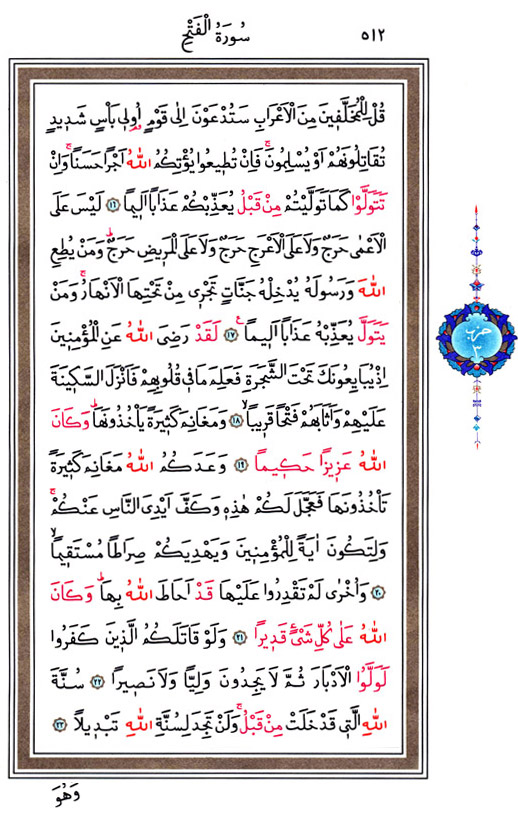 ٥١٢
سُورَةُ الْفَتْحِ
قُلْ لِلْمُخَلَّفٖينَ مِنَ الْاَعْرَابِ سَتُدْعَوْنَ اِلٰى قَوْمٍ اُو۬لٖي بَأْسٍ شَدٖيدٍ
تُقَاتِلُونَهُمْ اَوْ يُسْلِمُونَۚ فَاِنْ تُطٖيعُوا يُؤْتِكُمُ اللّٰهُ اَجْرًا حَسَنًاۚ وَاِنْ
تَتَوَلَّوْا كَمَا تَوَلَّيْتُمْ مِنْ قَبْلُ يُعَذِّبْكُمْ عَذَابًا اَلٖيمًا ﴿١٦﴾ لَيْسَ عَلَى
الْاَعْمٰى حَرَجٌ وَلَا عَلَى الْاَعْرَجِ حَرَجٌ وَلَا عَلَى الْمَرٖيضِ حَرَجٌۜ وَمَنْ يُطِعِ
اللّٰهَ وَرَسُولَهُ يُدْخِلْهُ جَنَّاتٍ تَجْرٖي مِنْ تَحْتِهَا الْاَنْهَارُۚ وَمَنْ
يَتَوَلَّ يُعَذِّبْهُ عَذَابًا اَلٖيمًاࣖ ﴿١٧﴾ لَقَدْ رَضِيَ اللّٰهُ عَنِ الْمُؤْمِنٖينَ
اِذْ يُبَايِعُونَكَ تَحْتَ الشَّجَرَةِ فَعَلِمَ مَا فٖي قُلُوبِهِمْ فَاَنْزَلَ السَّكٖينَةَ
عَلَيْهِمْ وَاَثَابَهُمْ فَتْحًا قَرٖيبًاۙ ﴿١٨﴾ وَمَغَانِمَ كَثٖيرَةً يَأْخُذُونَهَاۜ وَكَانَ
اللّٰهُ عَزٖيزًا حَكٖيمًا ﴿١٩﴾ وَعَدَكُمُ اللّٰهُ مَغَانِمَ كَثٖيرَةً
تَأْخُذُونَهَا فَعَجَّلَ لَكُمْ هٰذِهٖ وَكَفَّ اَيْدِيَ النَّاسِ عَنْكُمْۚ
وَلِتَكُونَ اٰيَةً لِلْمُؤْمِنٖينَ وَيَهْدِيَكُمْ صِرَاطًا مُسْتَقٖيمًاۙ
﴿٢٠﴾ وَاُخْرٰى لَمْ تَقْدِرُوا عَلَيْهَا قَدْ اَحَاطَ اللّٰهُ بِهَاۜ وَكَانَ
اللّٰهُ عَلٰى كُلِّ شَيْءٍ قَدٖيرًا ﴿٢١﴾ وَلَوْ قَاتَلَكُمُ الَّذٖينَ كَفَرُوا
لَوَلَّوُا الْاَدْبَارَ ثُمَّ لَا يَجِدُونَ وَلِيًّا وَلَا نَصٖيرًا ﴿٢٢﴾ سُنَّةَ
اللّٰهِ الَّتٖي قَدْ خَلَتْ مِنْ قَبْلُۚ وَلَنْ تَجِدَ لِسُنَّةِ اللّٰهِ تَبْدٖيلًا ﴿٢٣﴾
وَهُوَ
حزب
٣